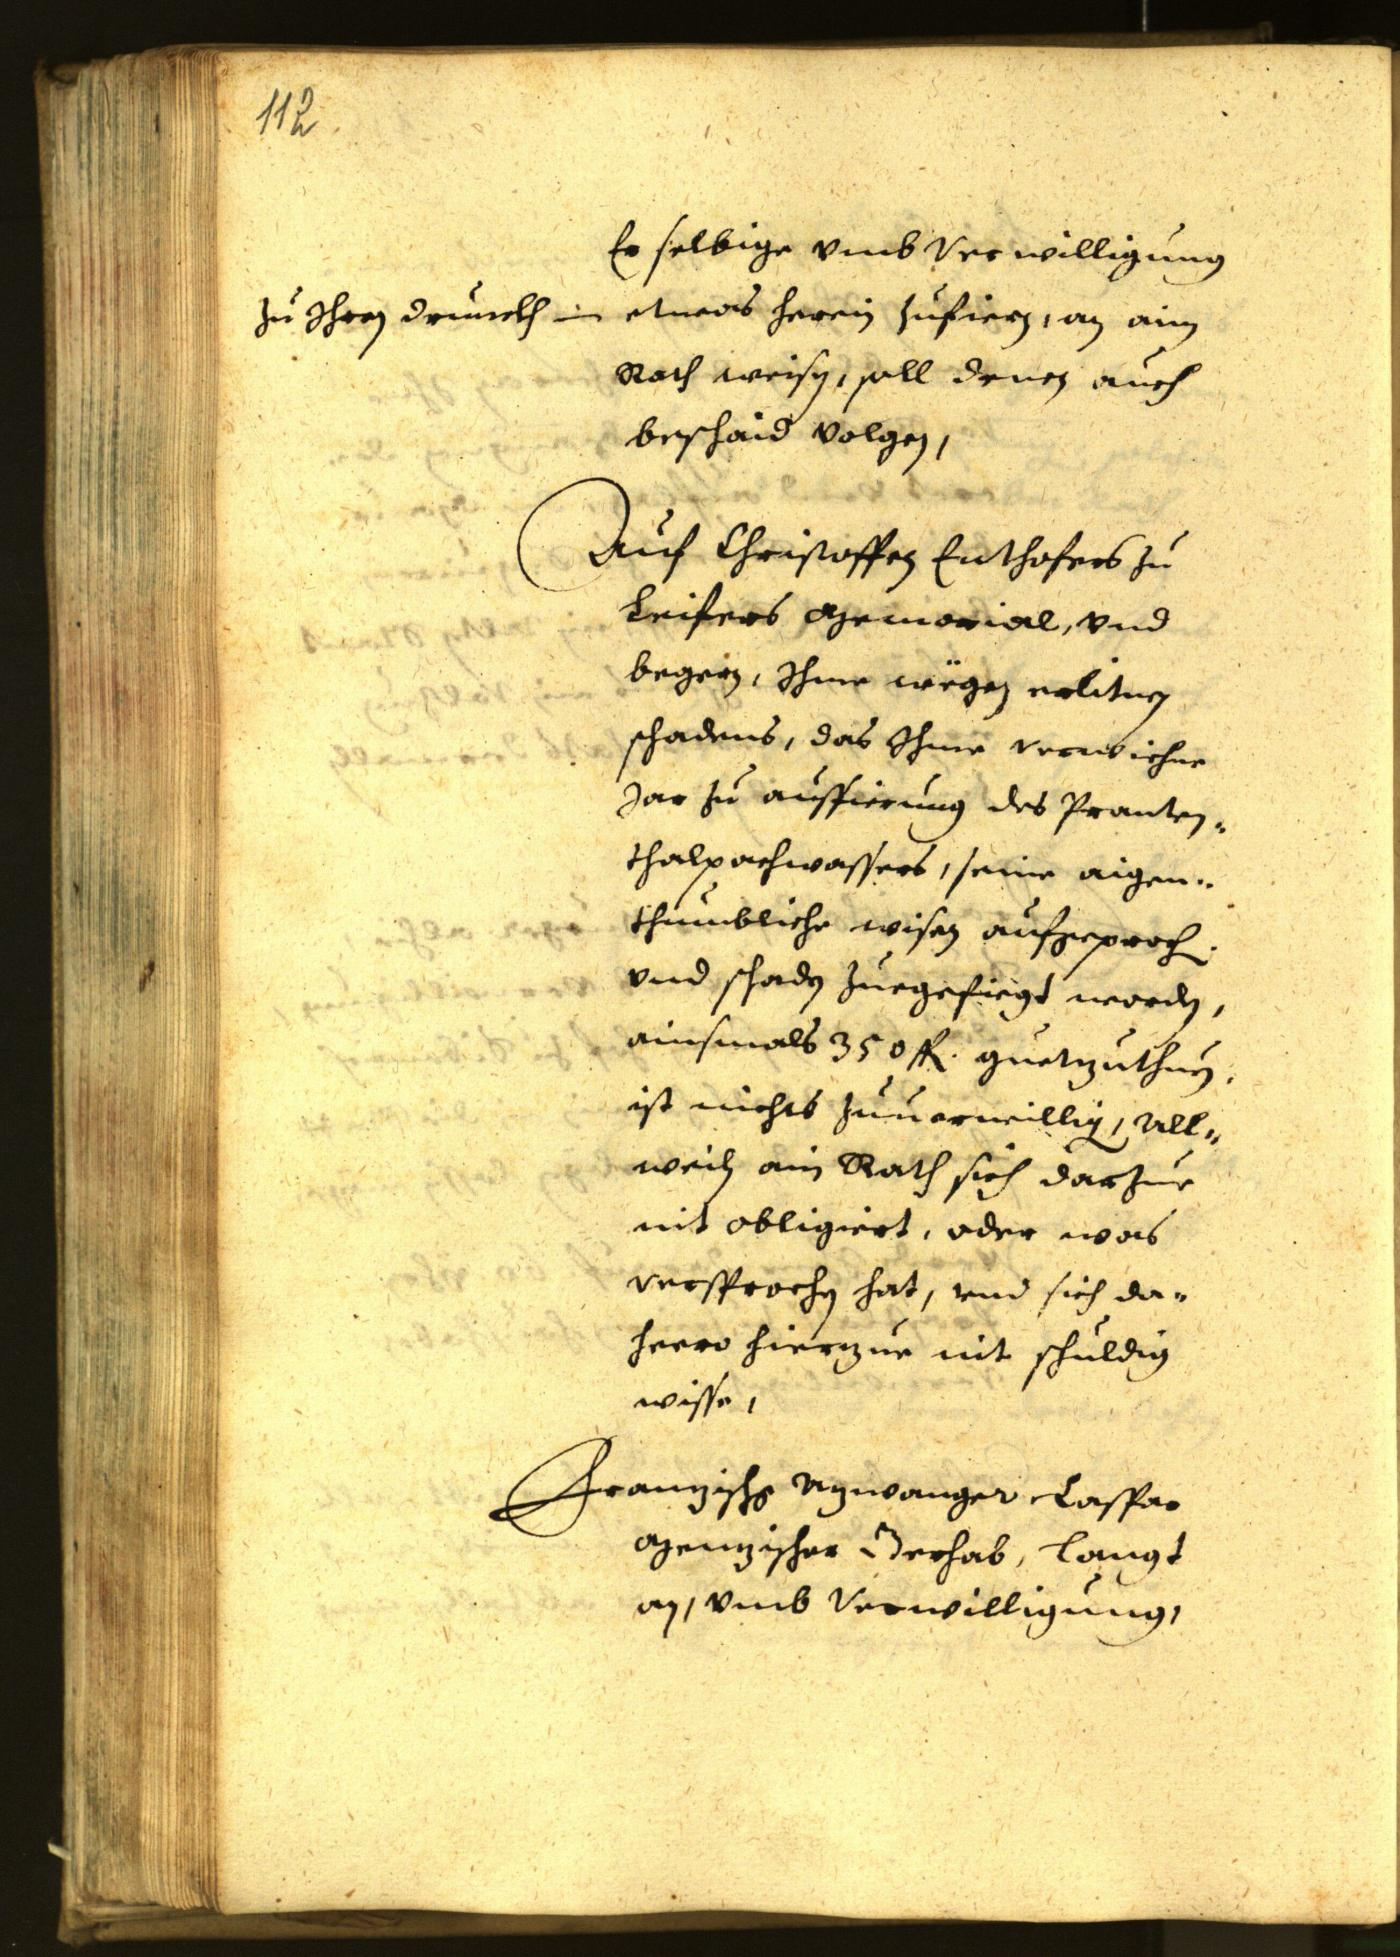 112
Er selbige vmb Verwilligung
zu Ihren drunckh etwas herein zufiern, an ain
Rath weisen, soll denen auch
beschaid volgen,
Auf Christoffen Enthofers zu
Leifers Memorial, vnd
begern, Ihme wegen erlitnen
schadens, das Ihme verwichne
Jar zu auffierung des Pranten-
thalpachwassers, seine aigen-
thumbliche wisen aufgeproch.
vnd schaden zuegefiegt worden,
ainsmals 350 fl. guetzuthuen,
ist nichts zuuerwillig, All-
weiln ain Rath sich darzue
nit obligiert, oder was
versprochen hat, vnd sich da-
heero hierzue nit schuldig
wisse,
Franzisch Aywanger Caspar
Menzischer Gerhab, langt
an, vmb Verwilligung,